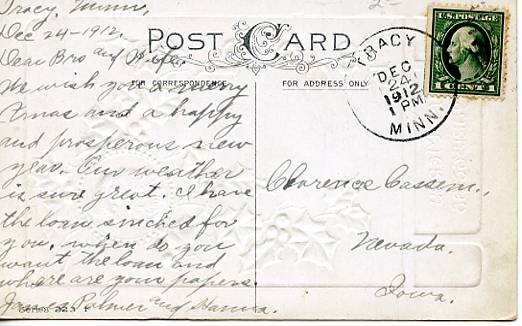 Tracy, Minn,
Dec 24-1912.
Dear Bro and Wife
We wish you a Merry
Xmas and a happy
and prosperous new
year. Our weather
is sure great. I have
the loan sinched for
you. when do you
want the loan and
where are your papers.
James Palmer and Hanna.
Series 323 F
2-
POST CARD
FOR CORRESPONDENCE
FOR ADDRESS ONLY
TRACY
DEC
24
1912
1 PM
MINN.
U.S. POSTAGE
1 CENT 1
Clarence Cassem.,
Nevada.
Iowa.